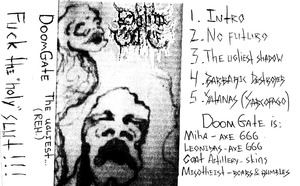 Fuck the "holy" slut!!!!
DoomGate The ugliest...
(REH.)
Doom
Gate
1. Intro
2. No Futuro
3. The ugliest shadow
4. Barbaric Destroyer
5. Satanas (Sarcofago)
DoomGate is:
Miha - axe 666
Leonidas - axe 666
Goat Artillery - skins
Misotheist - bombs & rumbles